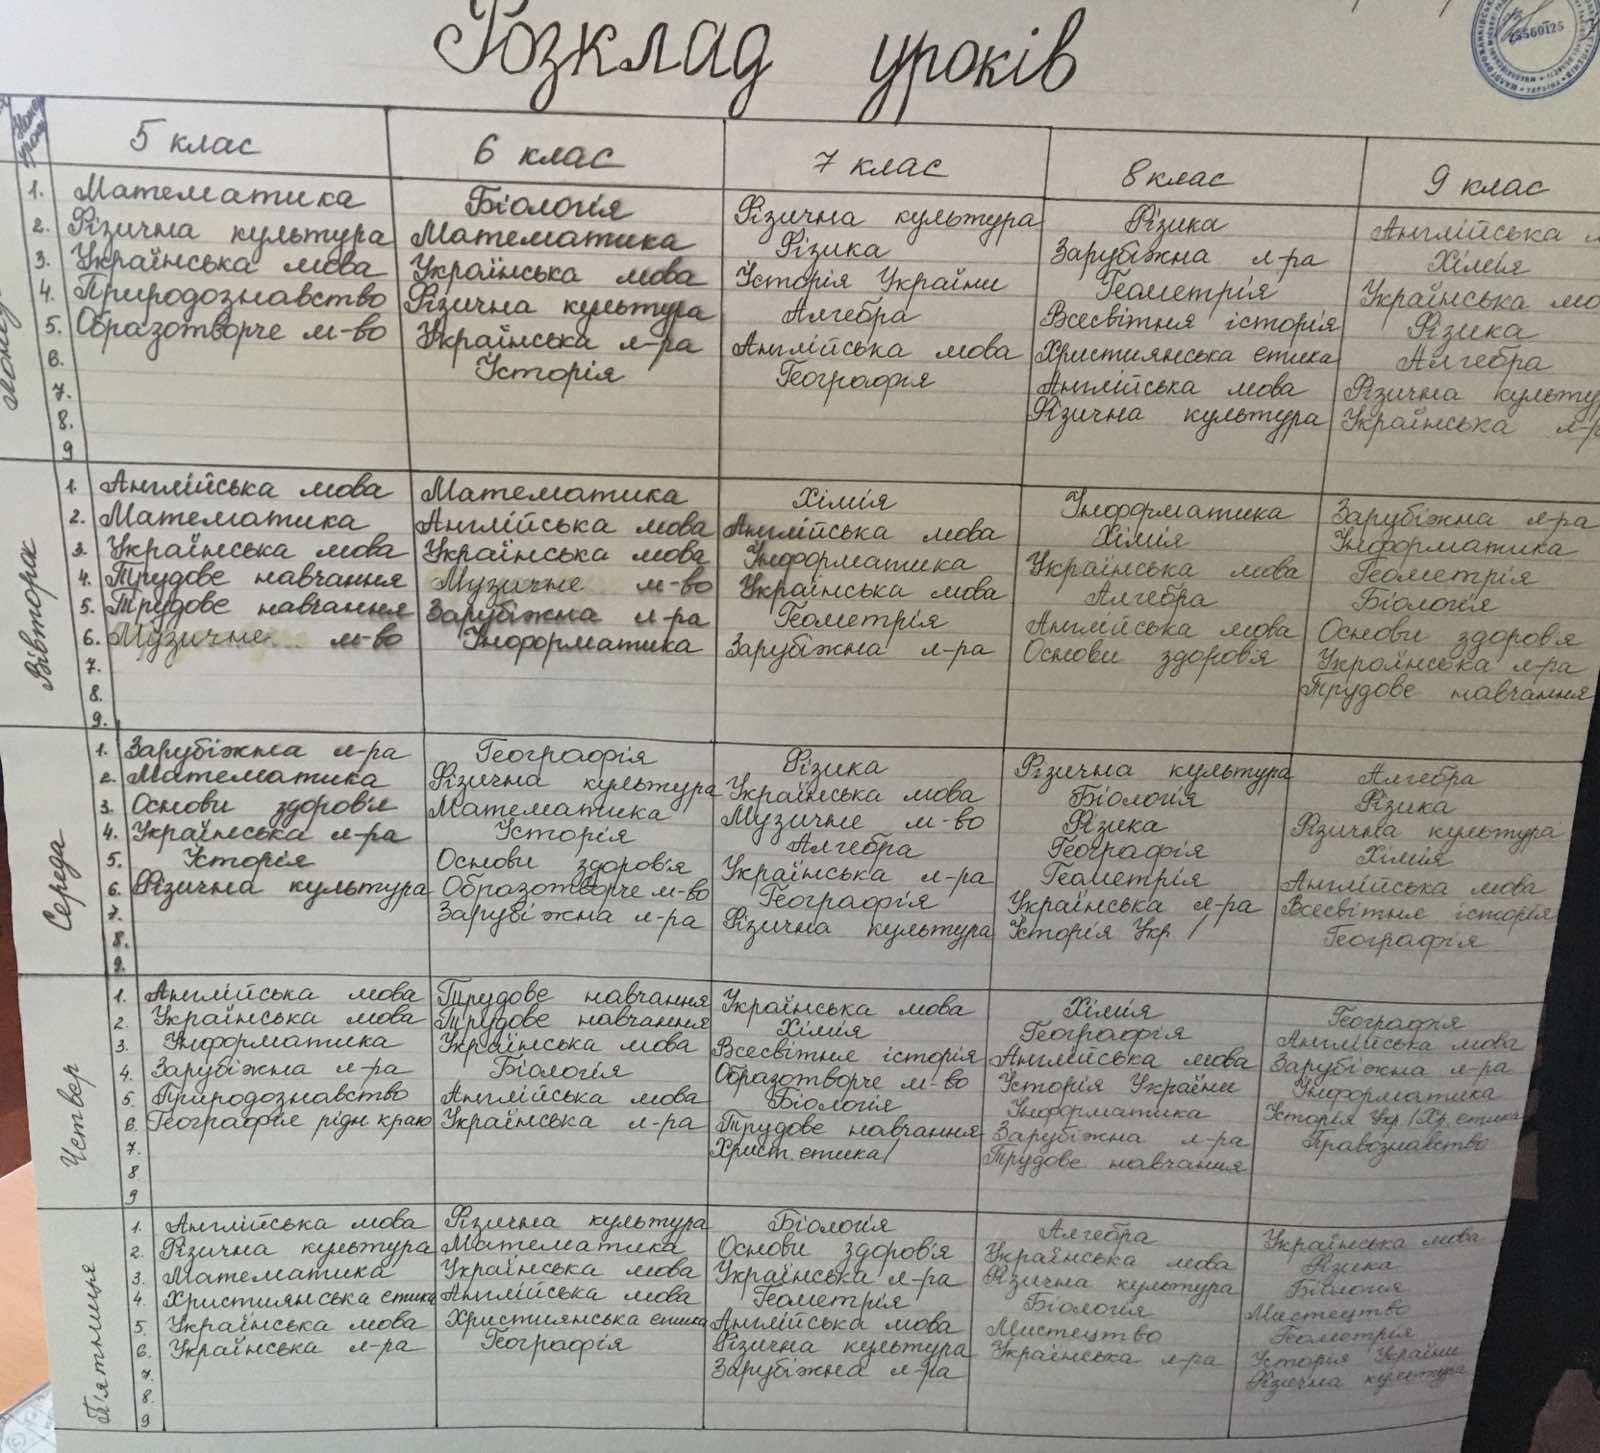 Розклад уроків
25560125
5 клас 6 клас 7 клас 8 клас 9 клас
1. Математика Біологія Фізична культура Фізика Англійська
2. Фізична культура Математика Фізика Зарубіжна л-ра Хімія
3. Українська мова Українська мова Історія України Геометрія Українська мо
4. Природознавство Фізична культура Алгебра Всесвітня історія Фізика
5. Образотворче м-во Українська л-ра Англійська мова Християнська етика Алгебра
6. Історія Географія Англійська мова Фізична культу
7. Фізична культура Українська л-р
8.
9
Вівторок
1. Англійська мова Математика Хімія Інформатика Зарубіжна л-ра
2. Математика Англійська мова Англійська мова Хімія Інформатика
3. Українська мова Українська мова Інформатика Українська мова Геометрія
4. Трудове навчання Музичне м-во Українська мова Алгебра Біологія
5. Трудове навчання Зарубіжна л-ра Геометрія Англійська мова Основи здоров'я
6. Музичне м-во Інформатика Зарубіжна л-ра Основи здоров'я Українська л-ра
7. Трудове навчання
8.
9.
Середа
1. Зарубіжна л-ра Географія Фізика Фізична культура Алгебра
2. Математика Фізична культура Українська мова Біологія Фізика
3. Основи здоров'я Математика Музичне м-во Фізика Фізична культура
4. Українська л-ра Історія Алгебра Географія Хімія
5. Історія Основи здоров'я Українська л-ра Геометрія Англійська мова
6. Фізична культура Образотворче м-во Географія Українська л-ра Всесвітня історія
7. Зарубіжна л-ра Фізична культура Історія Укр / Географія
8.
9.
Четвер
1. Англійська мова Трудове навчання Українська мова Хімія Географія
2. Українська мова Трудове навчання Хімія Географія Англійська мова
3. Інформатика Українська мова Всесвітня історія Англійська мова Зарубіжна л-ра
4. Зарубіжна л-ра Біологія Образотворче м-во Історія України Інформатика
5. Природознавство Англійська мова Біологія Інформатика Історія Укр / Хр. етика
6. Географія рідн краю Українська л-ра Трудове навчання Зарубіжна л-ра Правознавство
7. Христ. етика/ Трудове навчання
8
9
П'ятниця
1. Англійська мова Фізична культура Біологія Алгебра Українська мова
2. Фізична культура Математика Основи здоров'я Українська мова Фізика
3. Математика Українська мова Українська л-ра Фізична культура Біологія
4. Християнська етика Англійська мова Геометрія Біологія Мистецтво
5. Українська мова Християнська етика Англійська мова Мистецтво Геометрія
6. Українська л-ра Географія Фізична культура Українська л-ра Історія України
7. Зарубіжна л-ра Фізична культура
8.
9